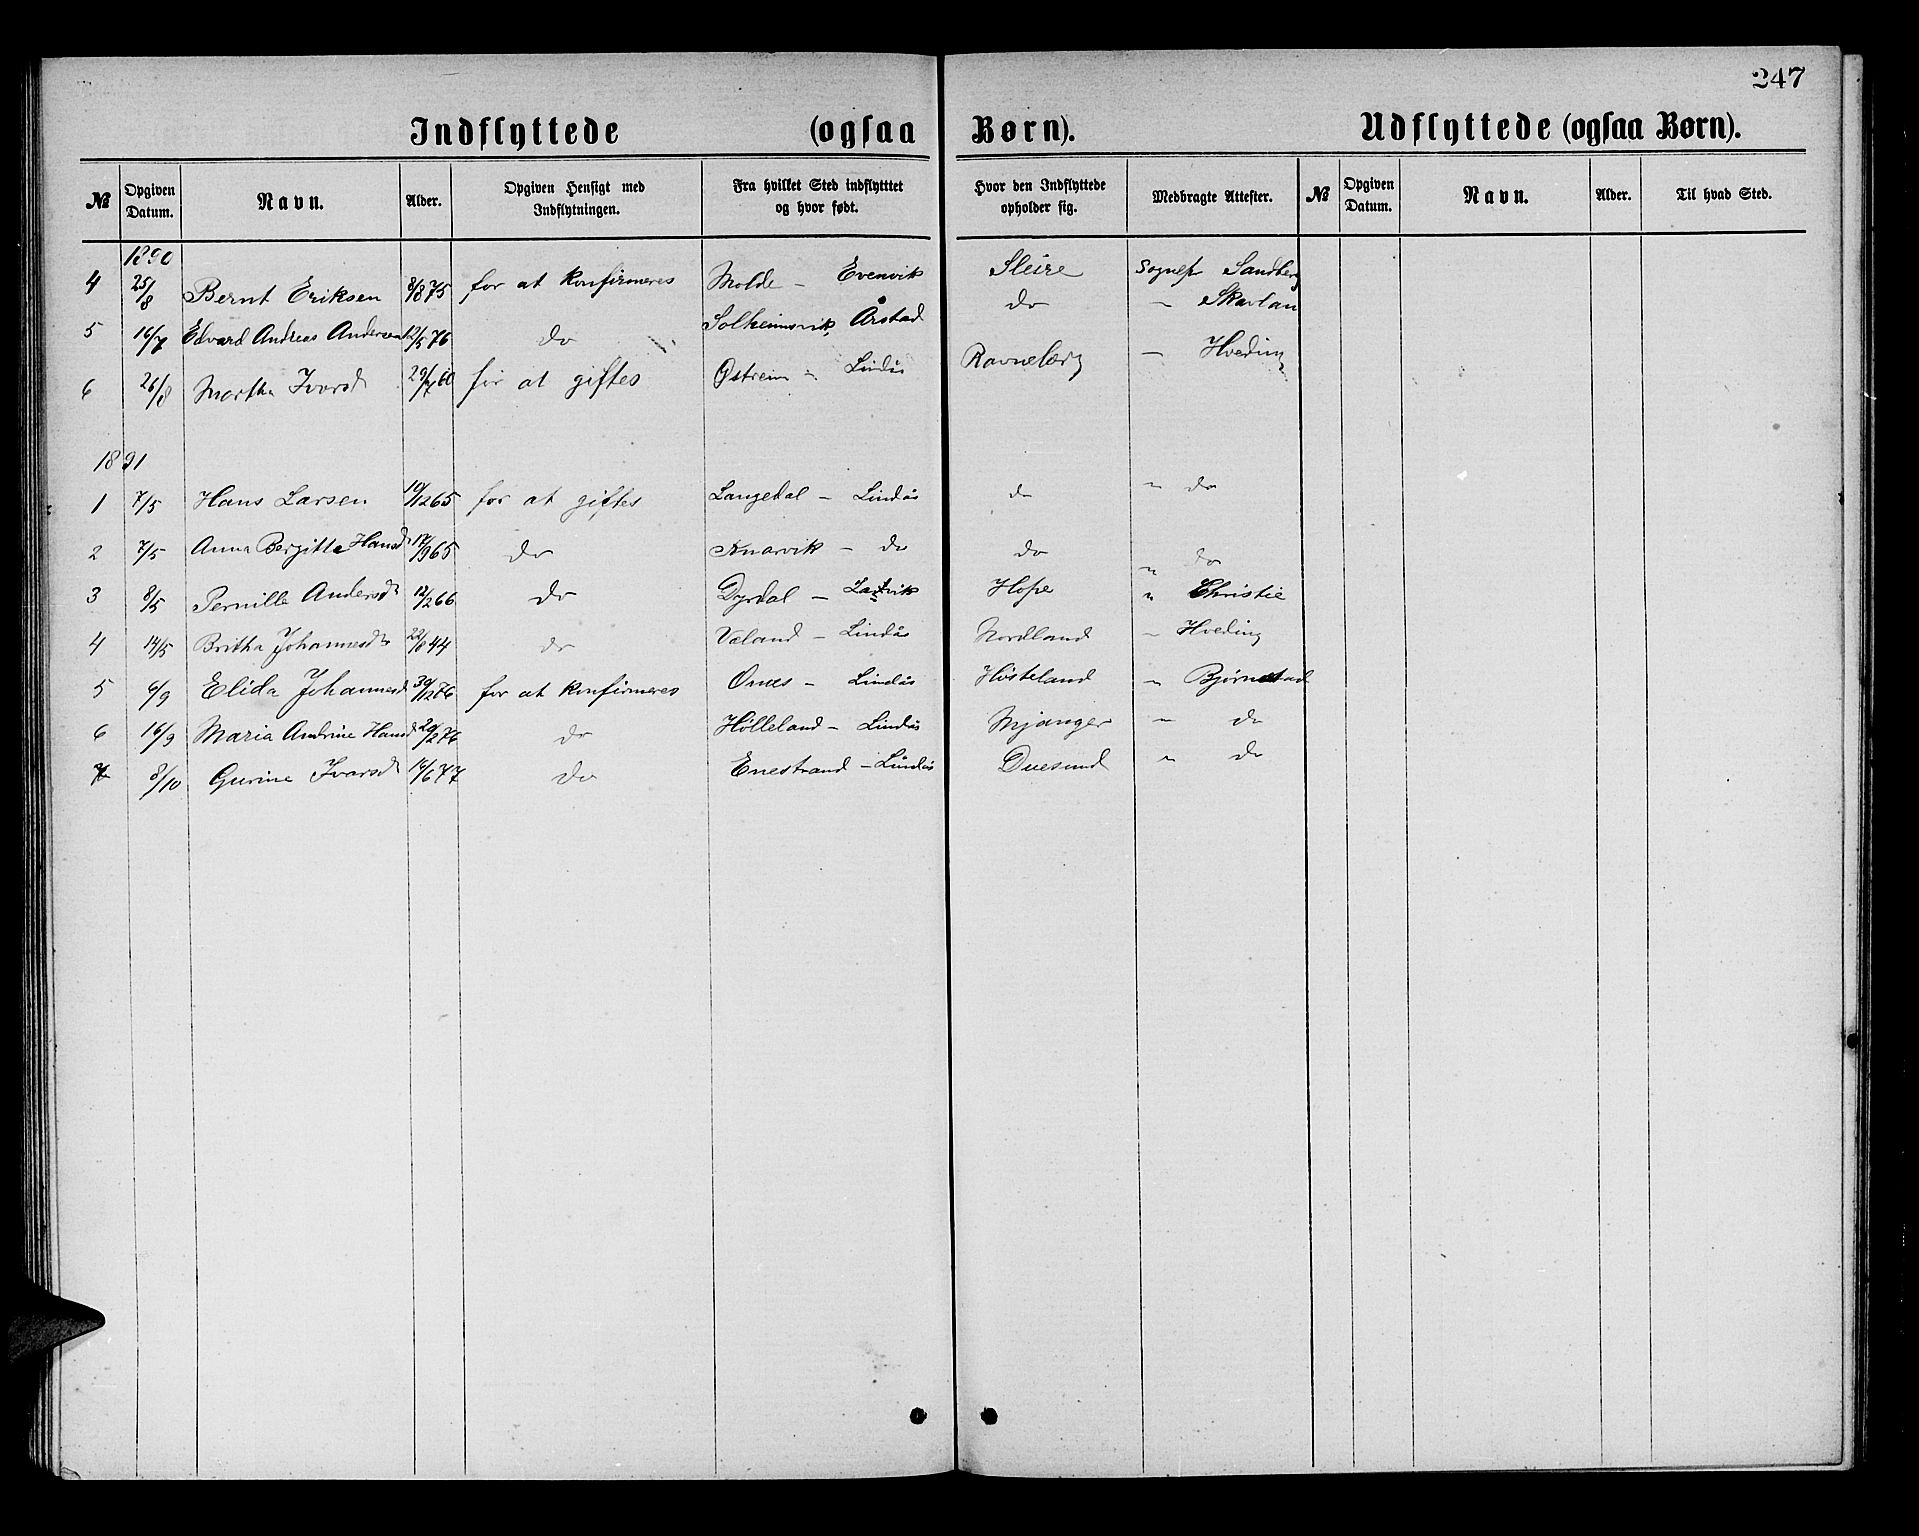 247
Indflyttede (ogsaa Børn).
Udflyttede (ogsaa Børn).
№ Opgiven Datum. Navn. Alder. Opgiven Hensigt med Indflytningen. Fra hvilket Sted indflytttet og hvor født. Hvor den Indflyttede opholder sig. Medbragte Attester. № Opgiven Datum. Navn. Alder. Til hvad Sted.
1890
4 25/8 Bernt Eriksen 8/8 75 for at konfirmeres Molde - Evenvik Sleire Sognepr Sandberg
5 16/7 Edvard Andreas Andersen 12/5 76 do Solheimsvik, Årstad do " Skavlan
6 26/8 Martha Ivarsd 29/7 60 for at giftes Østrein - Lindås Ravneberg - Hveding
1891
1 7/5 Hans Larsen 10/12 65 for at giftes Langedal - Lindås do " do
2 7/5 Anna Bergitte Hansd 17/9 65 do Knarvik - do do " do
3 8/5 Pernille Andersd 12/2 66 do Dyrdal - Hope " Christie
4 14/5 Britha Johannesd 22/8 44 do Veland - Lindås Nordland " Hveding
5 6/9 Elida Johannesd 30/12 76 for at konfirmeres Onæs - Lindås Høsteland " Bjørnstad
6 16/9 Maria Andrine Hansd 20/2 76 do Hølleland - Lindås Mjanger " do
7 8/10 Gurine Ivarsd 14/6 77 do Enestrand - Lindås Duesund " do